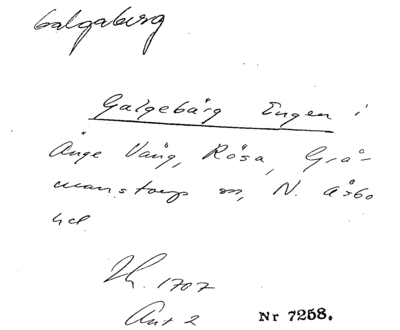 Galgaberg
Galgebärg Engen i
Ånge Vång, Rösa, Grå-
manstorp sn, N. Åsbo
hd
1707
Ant 2 Nr 7258.